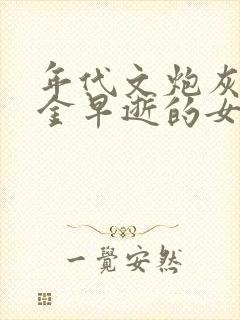 年代文炮灰
金早逝的女
一覺安然